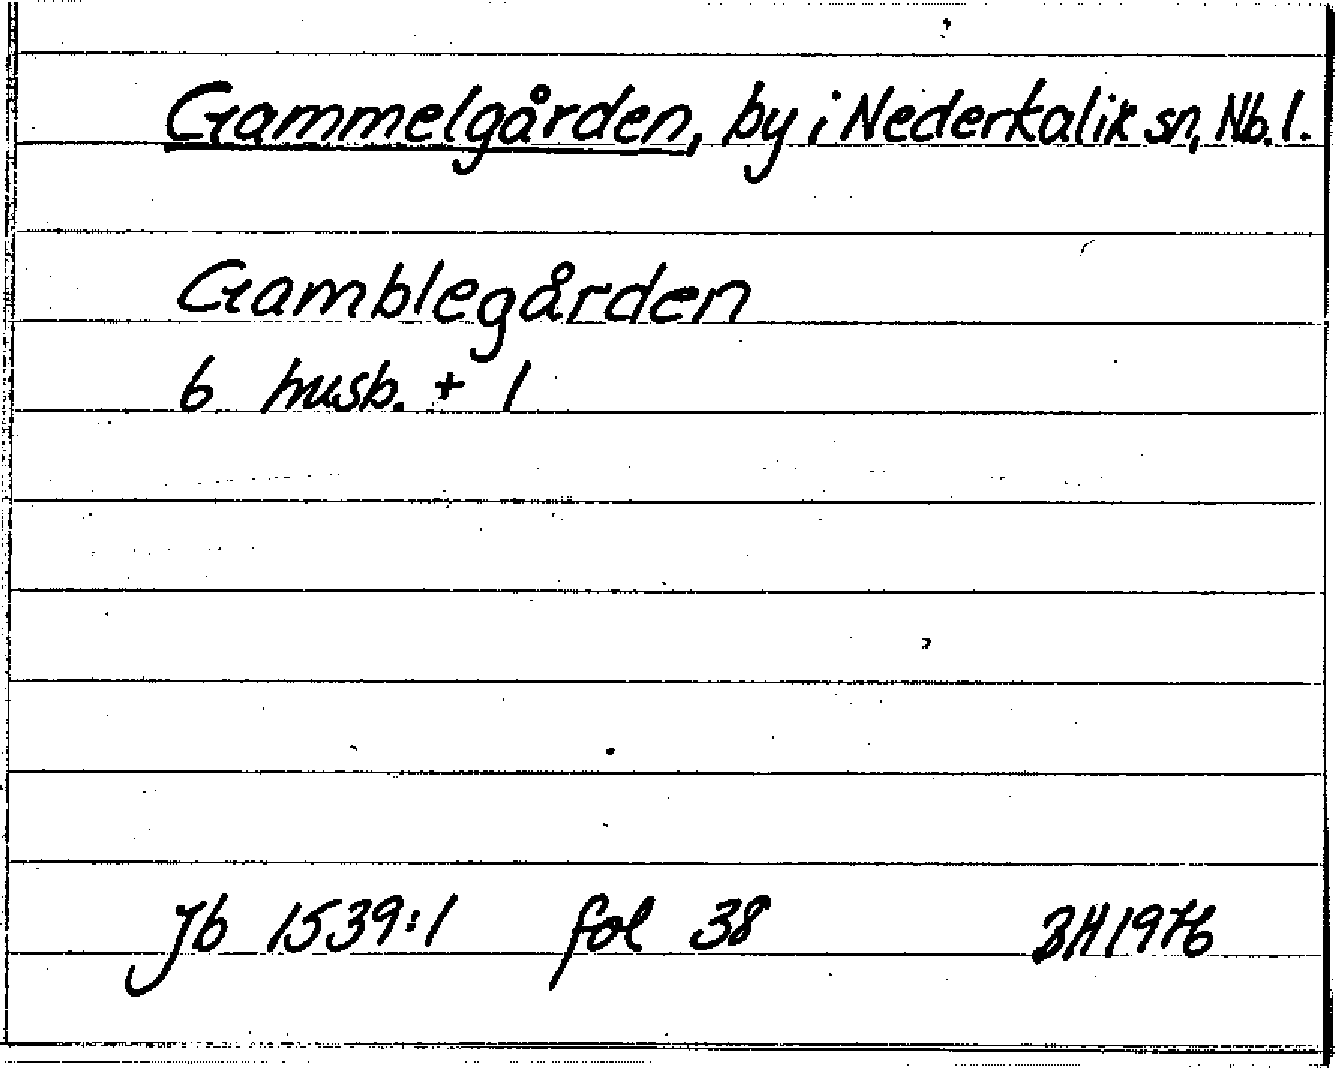 Gammelgården, by i Nederkalix sn, Nb. l.
Gamblegården
6 husb. + 1
Jb 1539:1 fol 38 BH 1976